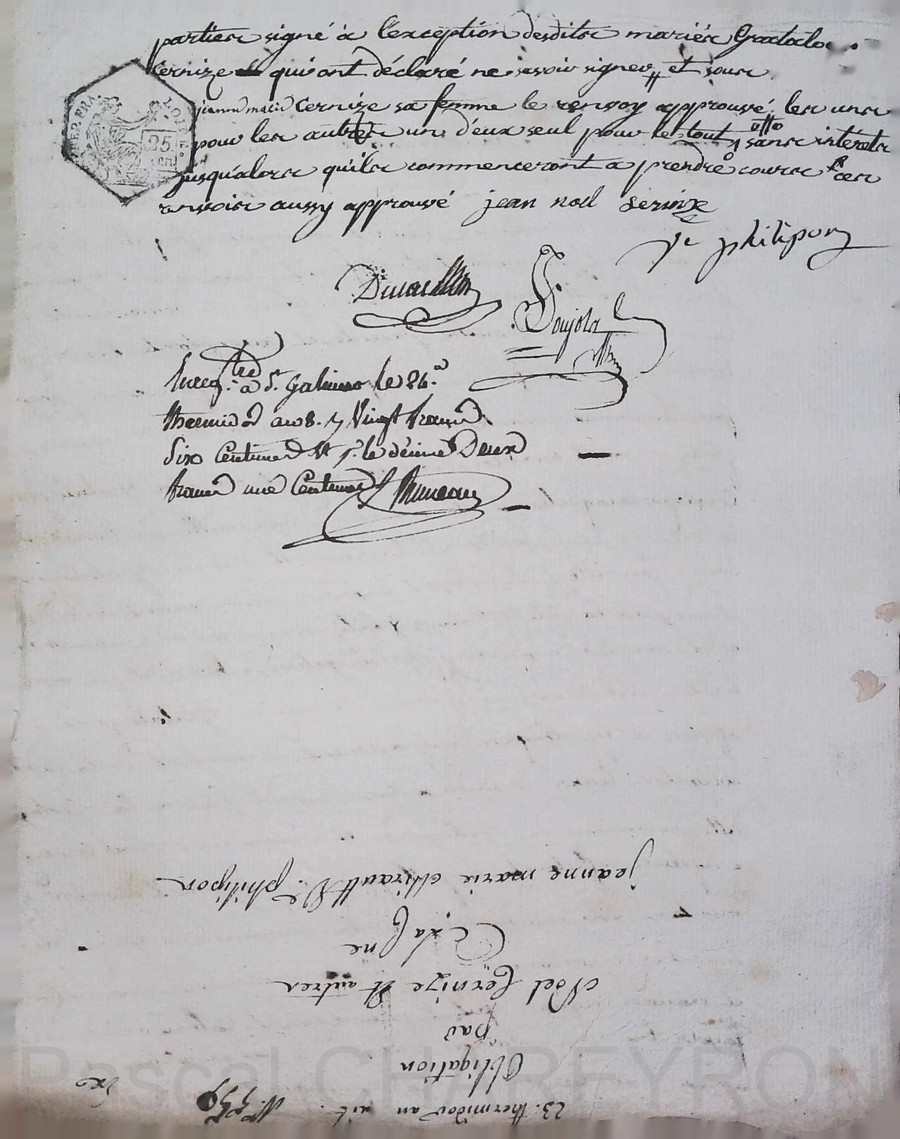 parties signé à l'exception desdits mariés Gratalou
Cernize qui ont déclaré ne savoir signer et sous
jeanne marie Cernize sa femme le renvoy approuvé, les uns
pour les autres un d'eux seul pour le tout sans intérets
jusqu'alors qu'ils commenceront à prendre cours ces
renvois aussy approuvé jean noel Sernize
Ve philipon
REP. FRA.
25
cent
Enreg. à St. Galmier le 24
thermidor an 8. Vingt francs
Six Centimes le décime Deux
francs une Centimes
jeanne marie philipon
Noel Cernize et autres
par
Obligation
23. thermidor an
Pascal CHAREYRON